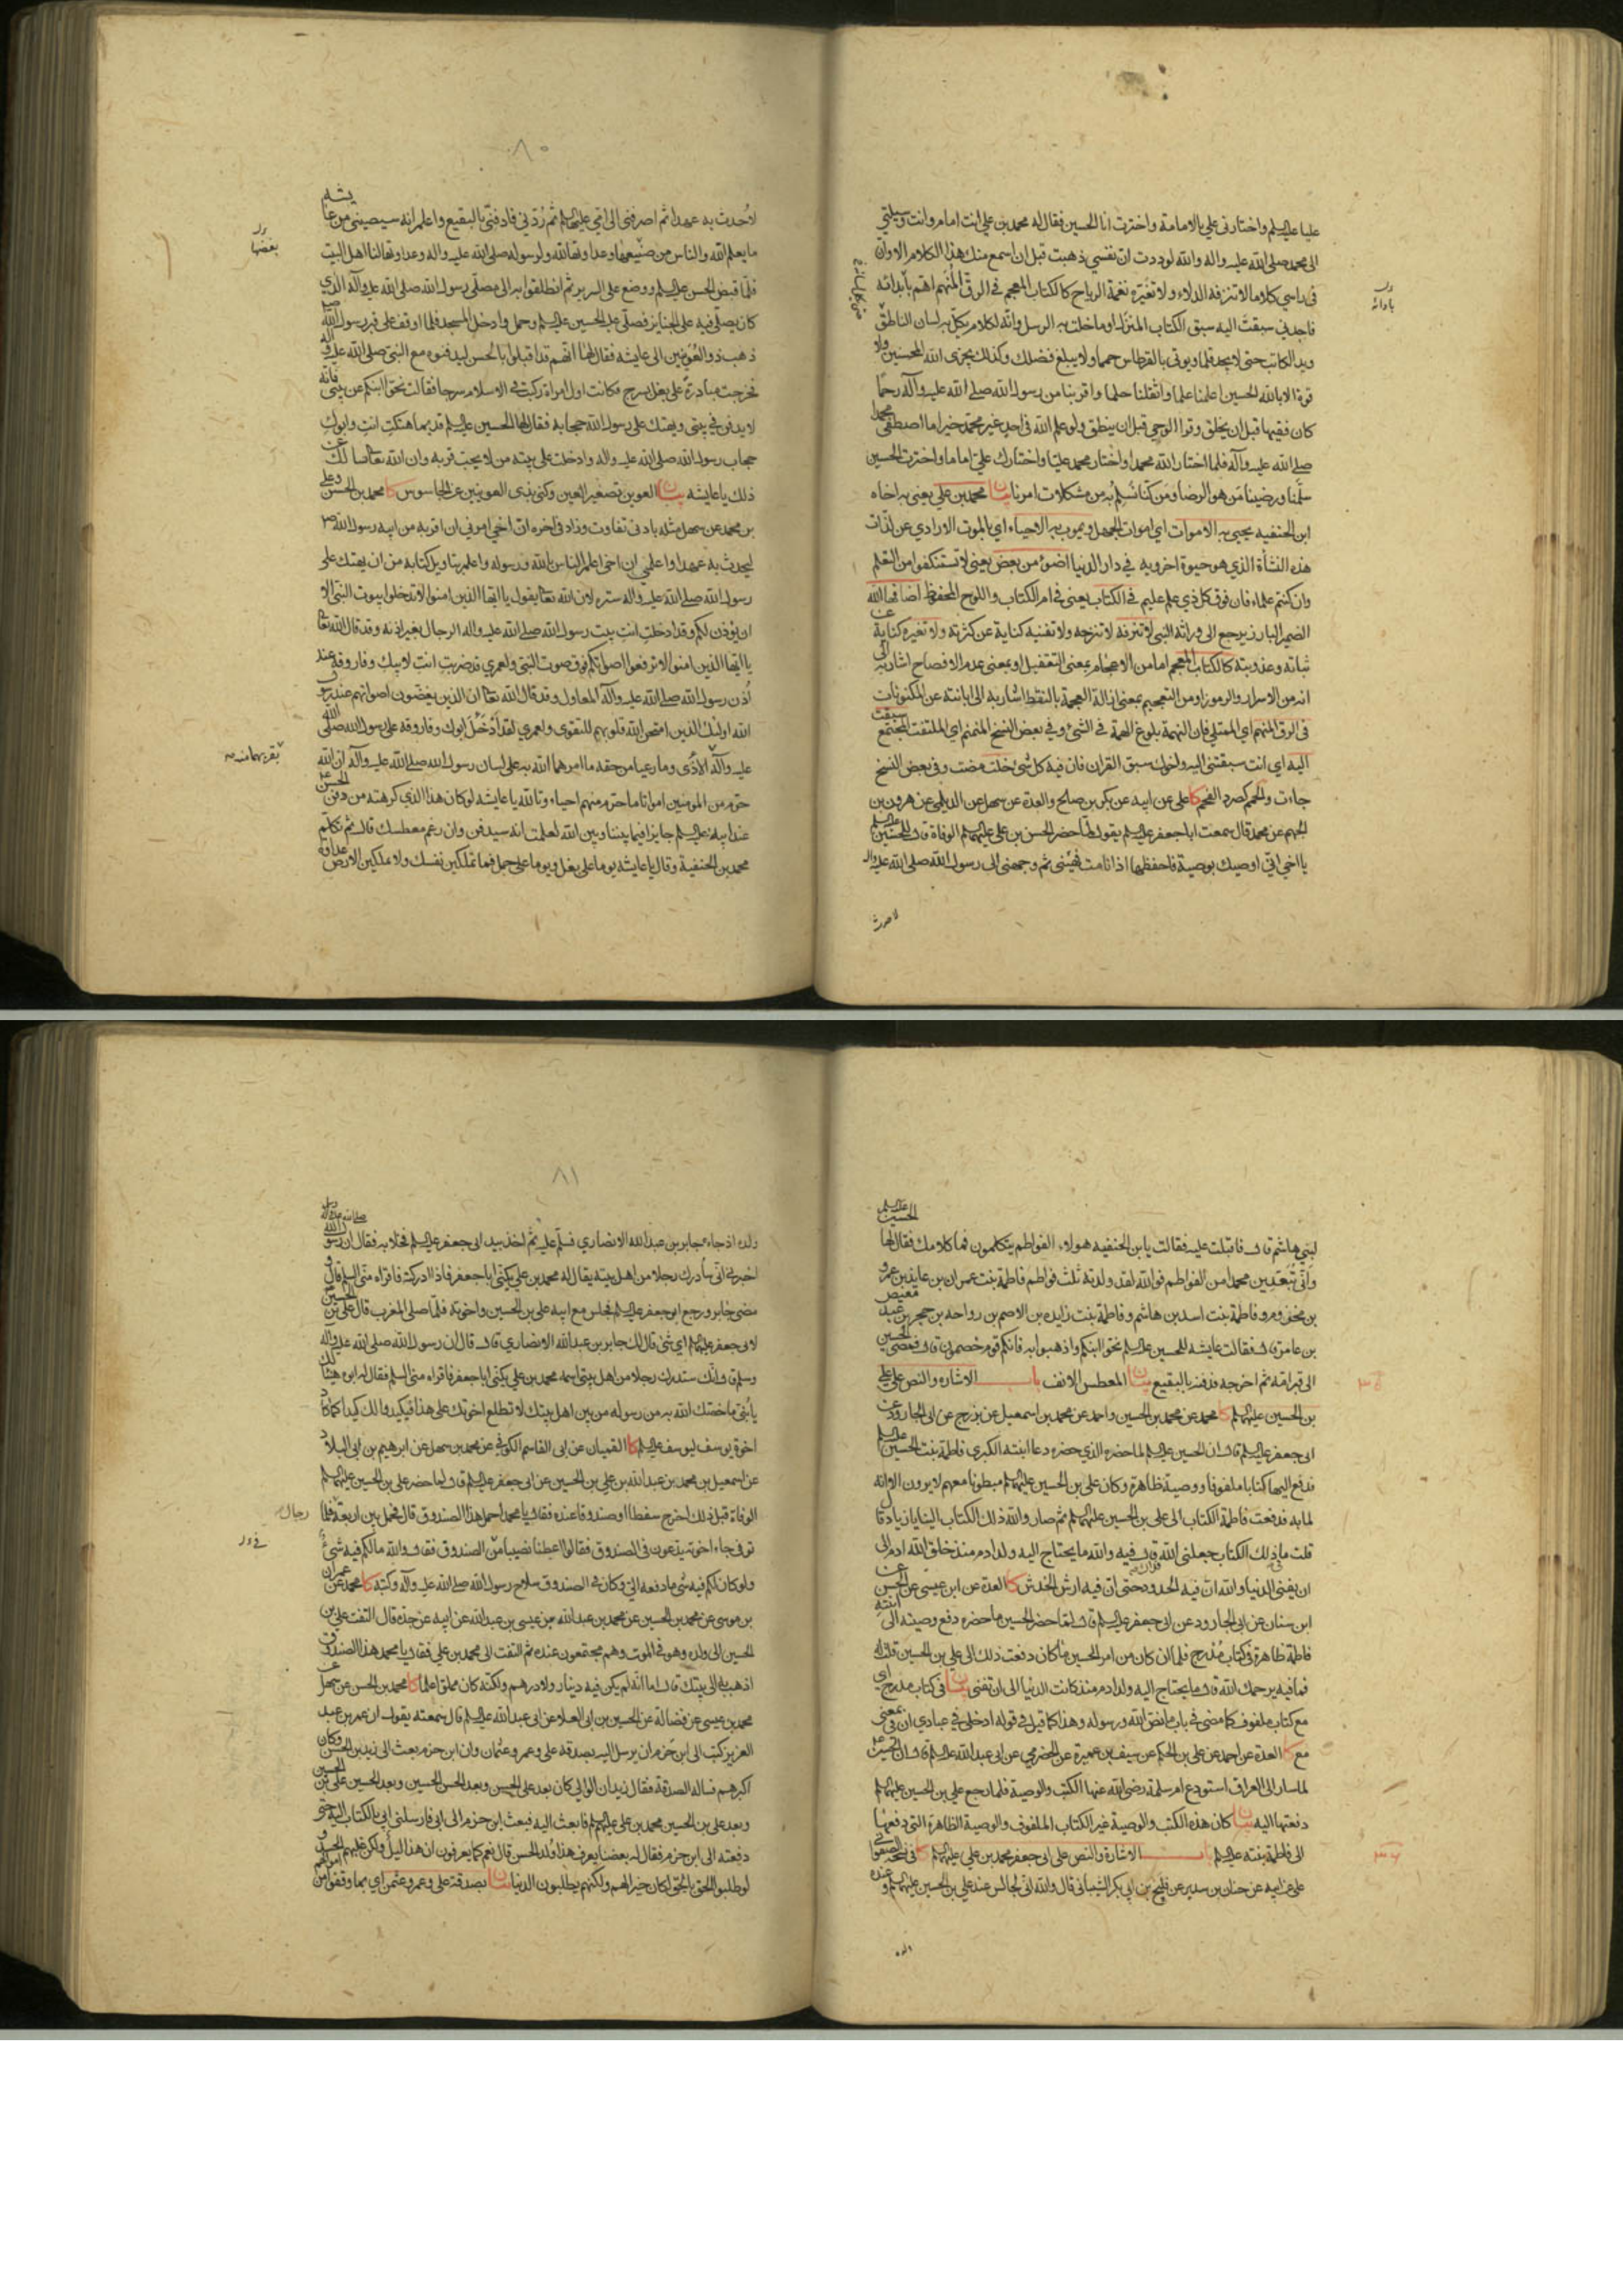 عليا عليه السلم واختارنى علي بالامامة واخترت انا الحسين فقال له محمد بن علي انت امام وانت وسيلتي
الى محمد صلى الله عليه واله والله لوددت ان نفسي ذهبت قبل ان اسمع منك هذا الكلام الا وان
فى راسي كلاما لا تنزفه الدلاء ولا تغيّره نغمة الرياح كالكتاب المعجم في الرق المنهم اهمّ بأبدائه
فاجدني سبقت اليه سبق الكتاب المنزل او ما خلت به الرسل وانّه لكلام يكلّ به لسان الناطق
ويد الكاتب حتى لا يجد قلما ويوتى بالقرطاس حمما ولا يبلغ فضلك وكذلك يجزى الله المحسنين ولا
قوة الا بالله الحسين اعلمنا علما واثقلنا حلما واقربنا من رسول الله صلى الله عليه وآله رحما
كان فقيها قبل ان يخلق وقرا الوحي قبل ان ينطق ولو علم الله في احد غير محمد خيرا ما اصطفى محمدا
صلى الله عليه وآله فلما اختار الله محمدا واختار محمد عليّا واختارك عليّ اماما واخترت الحسين
سلّمنا ورضينا من هو الرضا ومن كنا نسلم به من مشكلات امرنا بيان محمد بن علي يعنى به اخاه
ابن الحنفيه يحيى به الاموات اي اموات الجهل ويموت به الاحياء اي بالموت الارادي عن لذّات
هذه النشأة الذي هو حيوة اخرويه في دار الدنيا اضوء من بعض يعنى لا تستنكفوا من التعلم
وان كنتم علماء فان فوق كل ذي علم عليم في الكتاب يعنى في ام الكتاب واللوح المحفوظ اضافها الله
الضمير البارز يرجع الى وراثة النبى لا تنزفه لا تنزحه ولا تفنيه كناية عن كثرته ولا تغيره كناية عن
ثباته وعذوبته كالكتاب المعجم اما من الاعجام بمعنى التقفيل او بمعنى عدم الافصاح اشار به الى
انه من الاسرار والرموز او من التعجيم بمعنى ازالة العجمة بالنقط اشار به الى ابانته عن المكنونات
فى الرق المنهم اي الممتلي فان النهمة بلوغ الهمة في الشئ وفي بعض النسخ المنمنم اي الملتفت المجتمع سبقت
اليه اي انت سبقتنى اليه ولخوك سبق القران فان فيه كل شئ خلت مضت وفى بعض النسخ
جاءت والحمم كصرد الفحم كا علي عن ابيه عن بكر بن صالح والعدة عن سهل عن الديلمي عن هرون بن
الجهم عن محمد قال سمعت ابا جعفر عليه السلم يقول لمّا حضر الحسن بن علي عليهما السلم الوفاة قال للحسين عليه السلم
يا اخي انى اوصيك بوصية فاحفظها اذا انا مت فهيّئنى ثم وجهنى الى رسول الله صلى الله عليه واله
لاحدث
بادائه
٨٠
لاحدث به عهدا ثم اصرفنى الى امّي عليها السلم ثم ردّني فادفنّي بالبقيع واعلم انه سيصيبنى من عايشه
ما يعلم الله والناس من صنيعها وعداوتها لله ولرسوله صلى الله عليه واله وعداوتها لنا اهل البيت
فلمّا قبض الحسن عليه السلم ووضع على السرير ثم انطلقوا به الى مصلّى رسول الله صلى الله عليه وآله الذي
كان يصلّى فيه على الجنايز فصلّى عليه الحسين عليه السلم وحمل وادخل المسجد فلما اوقف على قبر رسول الله
ذهب ذو العُوَينين الى عايشه فقال لها انهم قد اقبلوا بالحسن ليدفنوه مع النبيّ صلى الله عليه واله
فخرجت مبادرة على بغل بسرج فكانت اول امراة ركبت في الاسلام سرجا فقالت نحّوا ابنكم عن بيتى فانه
لا يدفن في بيتى ويهتك على رسول الله حجابه فقال لها الحسين عليه السلم قديما هتكت انت وابوك
حجاب رسول الله صلى الله عليه واله وادخلت على بيته من لا يحب قربه وان الله تعالى سائلك عن
ذلك يا عايشه بيان العوين تصغير العين وكنى بذى العوينين عن الجاسوس كا محمد بن الحسن وعلي
بن محمد عن سهل مثله بادنى تفاوت وزاد فى اخره ان اخي امرني ان اقربه من ابيه رسول الله ص
ليحدث به عهدا واعلمي ان اخى اعلم الناس بالله ورسوله واعلم بتاويل كتابه من ان يهتك على
رسول الله صلى الله عليه واله ستره لان الله تعالى يقول يا ايها الذين امنوا لا تدخلوا بيوت النبى الا
ان يؤذن لكم وقد ادخلت انت بيت رسول الله صلى الله عليه واله الرجال بغير اذنه وقد قال الله تعالى
يا ايها الذين امنوا لا ترفعوا اصواتكم فوق صوت النبيّ ولعمري لقد ضربت انت لابيك وفاروقه عند
أذن رسول الله صلى الله عليه وآله المعاول وقد قال الله تعالى ان الذين يغضّون اصواتهم عند رسول
الله اولئك الذين امتحن الله قلوبهم للتقوى ولعمري لقد أدخل ابوك وفاروقه على رسول الله صلى الله
عليه وآله الأذى وما رعيا من حقه ما امرهما الله به على لسان رسول الله صلى الله عليه وآله ان الله
حرم من المومنين امواتا ما حرم منهم احياء وتالله يا عايشه لو كان هذا الذي كرهته من دفن الحسن
عند ابيه عليه السلم جايزا فيما بيننا وبين الله لعلمت انه سيدفن وان رغم معطسك قال ثم تكلّم
محمد بن الحنفية وقال يا عايشه يوما على بغل ويوما على جمل فما تملكين نفسك ولا تملكين الارض عداوة
بعضها
بقربهما منه
لبنى هاشم قال فاقبلت عليه فقالت يا بن الحنفيه هولاء الفواطم يتكلمون فما كلامك فقال لها الحسين عليه السلم
وانّى تبعدين محمدا من الفواطم فوالله لقد ولدته ثلث فواطم فاطمة بنت عمران بن عايذ بن عمرو
بن مخزوم وفاطمة بنت اسد بن هاشم وفاطمة بنت زايده بن الاصم بن رواحه بن حجر بن عبد معيص
بن عامر قال فقالت عايشه للحسين عليه السلم نحّوا ابنكم واذهبوا به فانكم قوم خصمون قال فمضى الحسين
الى قبر امّه ثم اخرجه فدفنه بالبقيع بيان المعطس الانف باب الاشارة والنص على علي
بن الحسين عليهما السلم كا محمد عن محمد بن الحسين واحمد عن محمد بن اسمعيل عن بزرج عن ابى الجارود عن
ابى جعفر عليه السلم قال ان الحسين عليه السلم لما حضره الذي حضره دعا ابنته الكبرى فاطمة بنت الحسين عليه السلم
فدفع اليها كتابا ملفوفا ووصية ظاهرة وكان علي بن الحسين عليهما السلم مبطونا معهم لا يرون الا انه
لما به فدفعت فاطمة الكتاب الى على بن الحسين عليهما السلم ثم صار والله ذلك الكتاب الينا يا زياد قال
قلت ما فى ذلك الكتاب جعلنى الله فداك قال فيه والله ما يحتاج اليه ولد ادم منذ خلق الله ادم الى
ان يفنى الدنيا والله ان فيه الحدود حتى ان فيه ارش الخدش كا العدة عن ابن عيسى عن الحسين عن
ابن سنان عن ابى الجارود عن ابى جعفر عليه السلم قال لمّا حضر الحسين ما حضره دفع وصيته الى ابنته
فاطمة ظاهرة فى كتاب مُدرج فلما ان كان من امر الحسين ما كان دفعت ذلك الى على بن الحسين قلت له
فما فيه يرحمك الله قال ما يحتاج اليه ولد ادم منذ كانت الدنيا الى ان تفنى بيان فى كتاب مدرج اي
مع كتاب ملفوف كما مضى في باب ما نصّ الله ورسوله وهذا كما قيل في قوله ادخلى في عبادي ان فى بمعنى
مع كا العدة عن احمد عن على بن الحكم عن سيف بن عميرة عن الحضرمي عن ابى عبد الله عليه السلم قال ان الحسين
لما سار الى العراق استودع ام سلمة رضى الله عنها الكتب والوصية فلما رجع علي بن الحسين عليهما السلم
دفعتها اليه بيان كان هذه الكتب والوصية غير الكتاب الملفوف والوصية الظاهرة التى دفعها
الى فاطمة بنته عليه السلم باب الاشارة والنص على ابى جعفر محمد بن علي عليهما السلم كا فى نسخه الصفوانى
على عن ابيه عن حنان بن سدير عن فليح بن ابي بكر الشيبانى قال والله انى لجالس عند علي بن الحسين عليهما السلم وعنده
ولده
٨١
ولده اذ جاءه جابر بن عبد الله الانصاري فسلّم عليه ثم اخذ بيد ابى جعفر عليه السلم فخلا به فقال ان رسول الله صلى الله عليه واله
اخبرنى انى سأدرك رجلا من اهل بيته يقال له محمد بن علي يكنّى ابا جعفر فاذا ادركته فاقراه منّى السلم قال و
مضى جابر ورجع ابو جعفر عليه السلم فجلس مع ابيه على بن الحسين واخوته فلمّا صلى المغرب قال على بن الحسين
لابى جعفر عليهما السلم اي شئ قال لك جابر بن عبد الله الانصاري قال قال ان رسول الله صلى الله عليه واله
وسلم قال انك ستدرك رجلا من اهل بيتى اسمه محمد بن علي يكنّى ابا جعفر فاقراه منى السلم فقال له ابوه هنيئا لك
يا بُنيّ ما خصّك الله به من رسوله من بين اهل بيتك لا تطلع اخوتك على هذا فيكيدوا لك كيدا كما كادوا
اخوة يوسف ليوسف عليه السلم كا القميان عن ابى القاسم الكوفي عن محمد بن سهل عن ابرهيم بن ابى البلاد
عن اسمعيل بن محمد بن عبد الله بن علي بن الحسين عن ابى جعفر عليه السلم قال لما حضر علي بن الحسين عليهما السلم
الوفاة قبل ذلك اخرج سفطا او صندوقا عنده فقال يا محمد احمل هذا الصندوق قال فحمل بين اربعة فلمّا
توفى جاء اخوته يدّعون فى الصندوق فقالوا اعطنا نصيبنا من الصندوق فقال والله ما لكم فيه شئ
ولو كان لكم فيه شئ ما دفعه اليّ وكان في الصندوق سلاح رسول الله صلى الله عليه وآله وكتبه كا محمد عن عمران
بن موسى عن محمد بن الحسين عن محمد بن عبد الله عن عيسى بن عبد الله عن ابيه عن جدّه قال التفت علي بن
الحسين الى ولده وهو فى الموت وهم مجتمعون عنده ثم التفت الى محمد بن علي فقال يا محمد هذا الصندوق
اذهب به الى بيتك قال اما انّه لم يكن فيه دينار ولا درهم ولكنّه كان مملوّا علما كا محمد بن الحسن عن سهل عن
محمد بن عيسى عن فضالة عن الحسين بن ابى العلاء عن ابى عبد الله عليه السلم قال سمعته يقول ان عمر بن عبد
العزيز كتب الى ابن حزم ان يرسل اليه بصدقة علي وعمر وعثمان وان ابن حزم بعث الى زيد بن الحسن وكان
اكبرهم فساله الصدقة فقال زيد ان الوالى كان بعد على الحسن وبعد الحسن الحسين وبعد الحسين على بن الحسين
وبعد على بن الحسين محمد بن على عليهم السلم فابعث اليه فبعث ابن حزم الى ابى فارسلنى ابى بالكتاب اليه حتى
دفعته الى ابن حزم فقال له بعضنا يعرف هذا ولد الحسن قال نعم كما يعرفون ان هذا الليل ولكن يحملهم الحسد و
لو طلبوا الحق بالحق لكان خيرا لهم ولكنهم يطلبون الدنيا بيان بصدقة علي وعمر وعثمن اي بما وقفوا من اموالهم
رجال